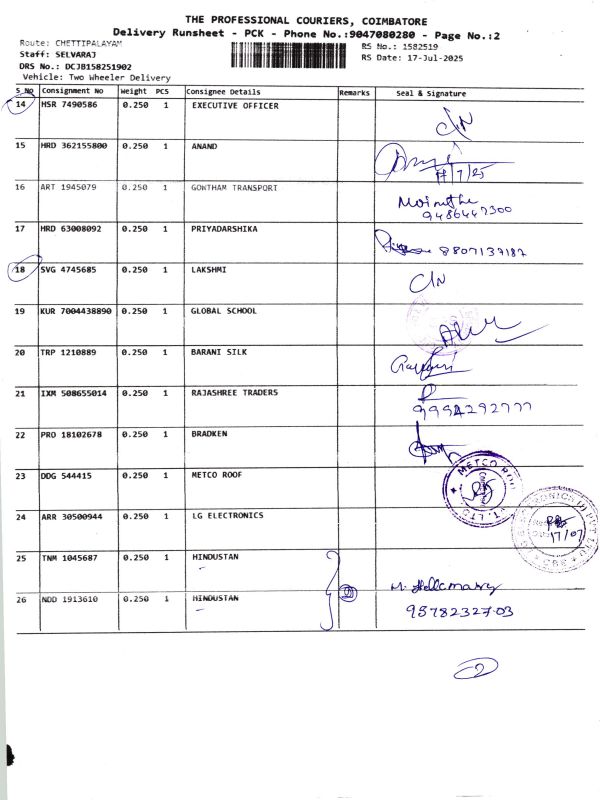 THE PROFESSIONAL COURIERS, COIMBATORE
Delivery Runsheet - PCK - Phone No.:9047080280 - Page No.:2
Route: CHETTIPALAYAM
Staff: SELVARAJ
DRS No.: DCJB158251902
Vehicle: Two Wheeler Delivery
RS No.: 1582519
RS Date: 17-Jul-2025
S_No Consignment No Weight PCS Consignee Details Remarks Seal & Signature
14 HSR 7490586 0.250 1 EXECUTIVE OFFICER C/N
15 HRD 362155800 0.250 1 ANAND 17/7/25
16 ART 1945079 0.250 1 GOWTHAM TRANSPORT
9486447300
17 HRD 63008092 0.250 1 PRIYADARSHIKA 8807137187
18 SVG 4745685 0.250 1 LAKSHMI C/N
19 KUR 7004438890 0.250 1 GLOBAL SCHOOL
20 TRP 1210889 0.250 1 BARANI SILK
21 IXM 508655014 0.250 1 RAJASHREE TRADERS
9994292777
22 PRO 18102678 0.250 1 BRADKEN
23 DDG 544415 0.250 1 METCO ROOF METCO ROO PT. LTD
24 ARR 30500944 0.250 1 LG ELECTRONICS 17/07
25 TNM 1045687 0.250 1 HINDUSTAN
26 NDD 1913610 0.250 1 HINDUSTAN 2
9578232703
2